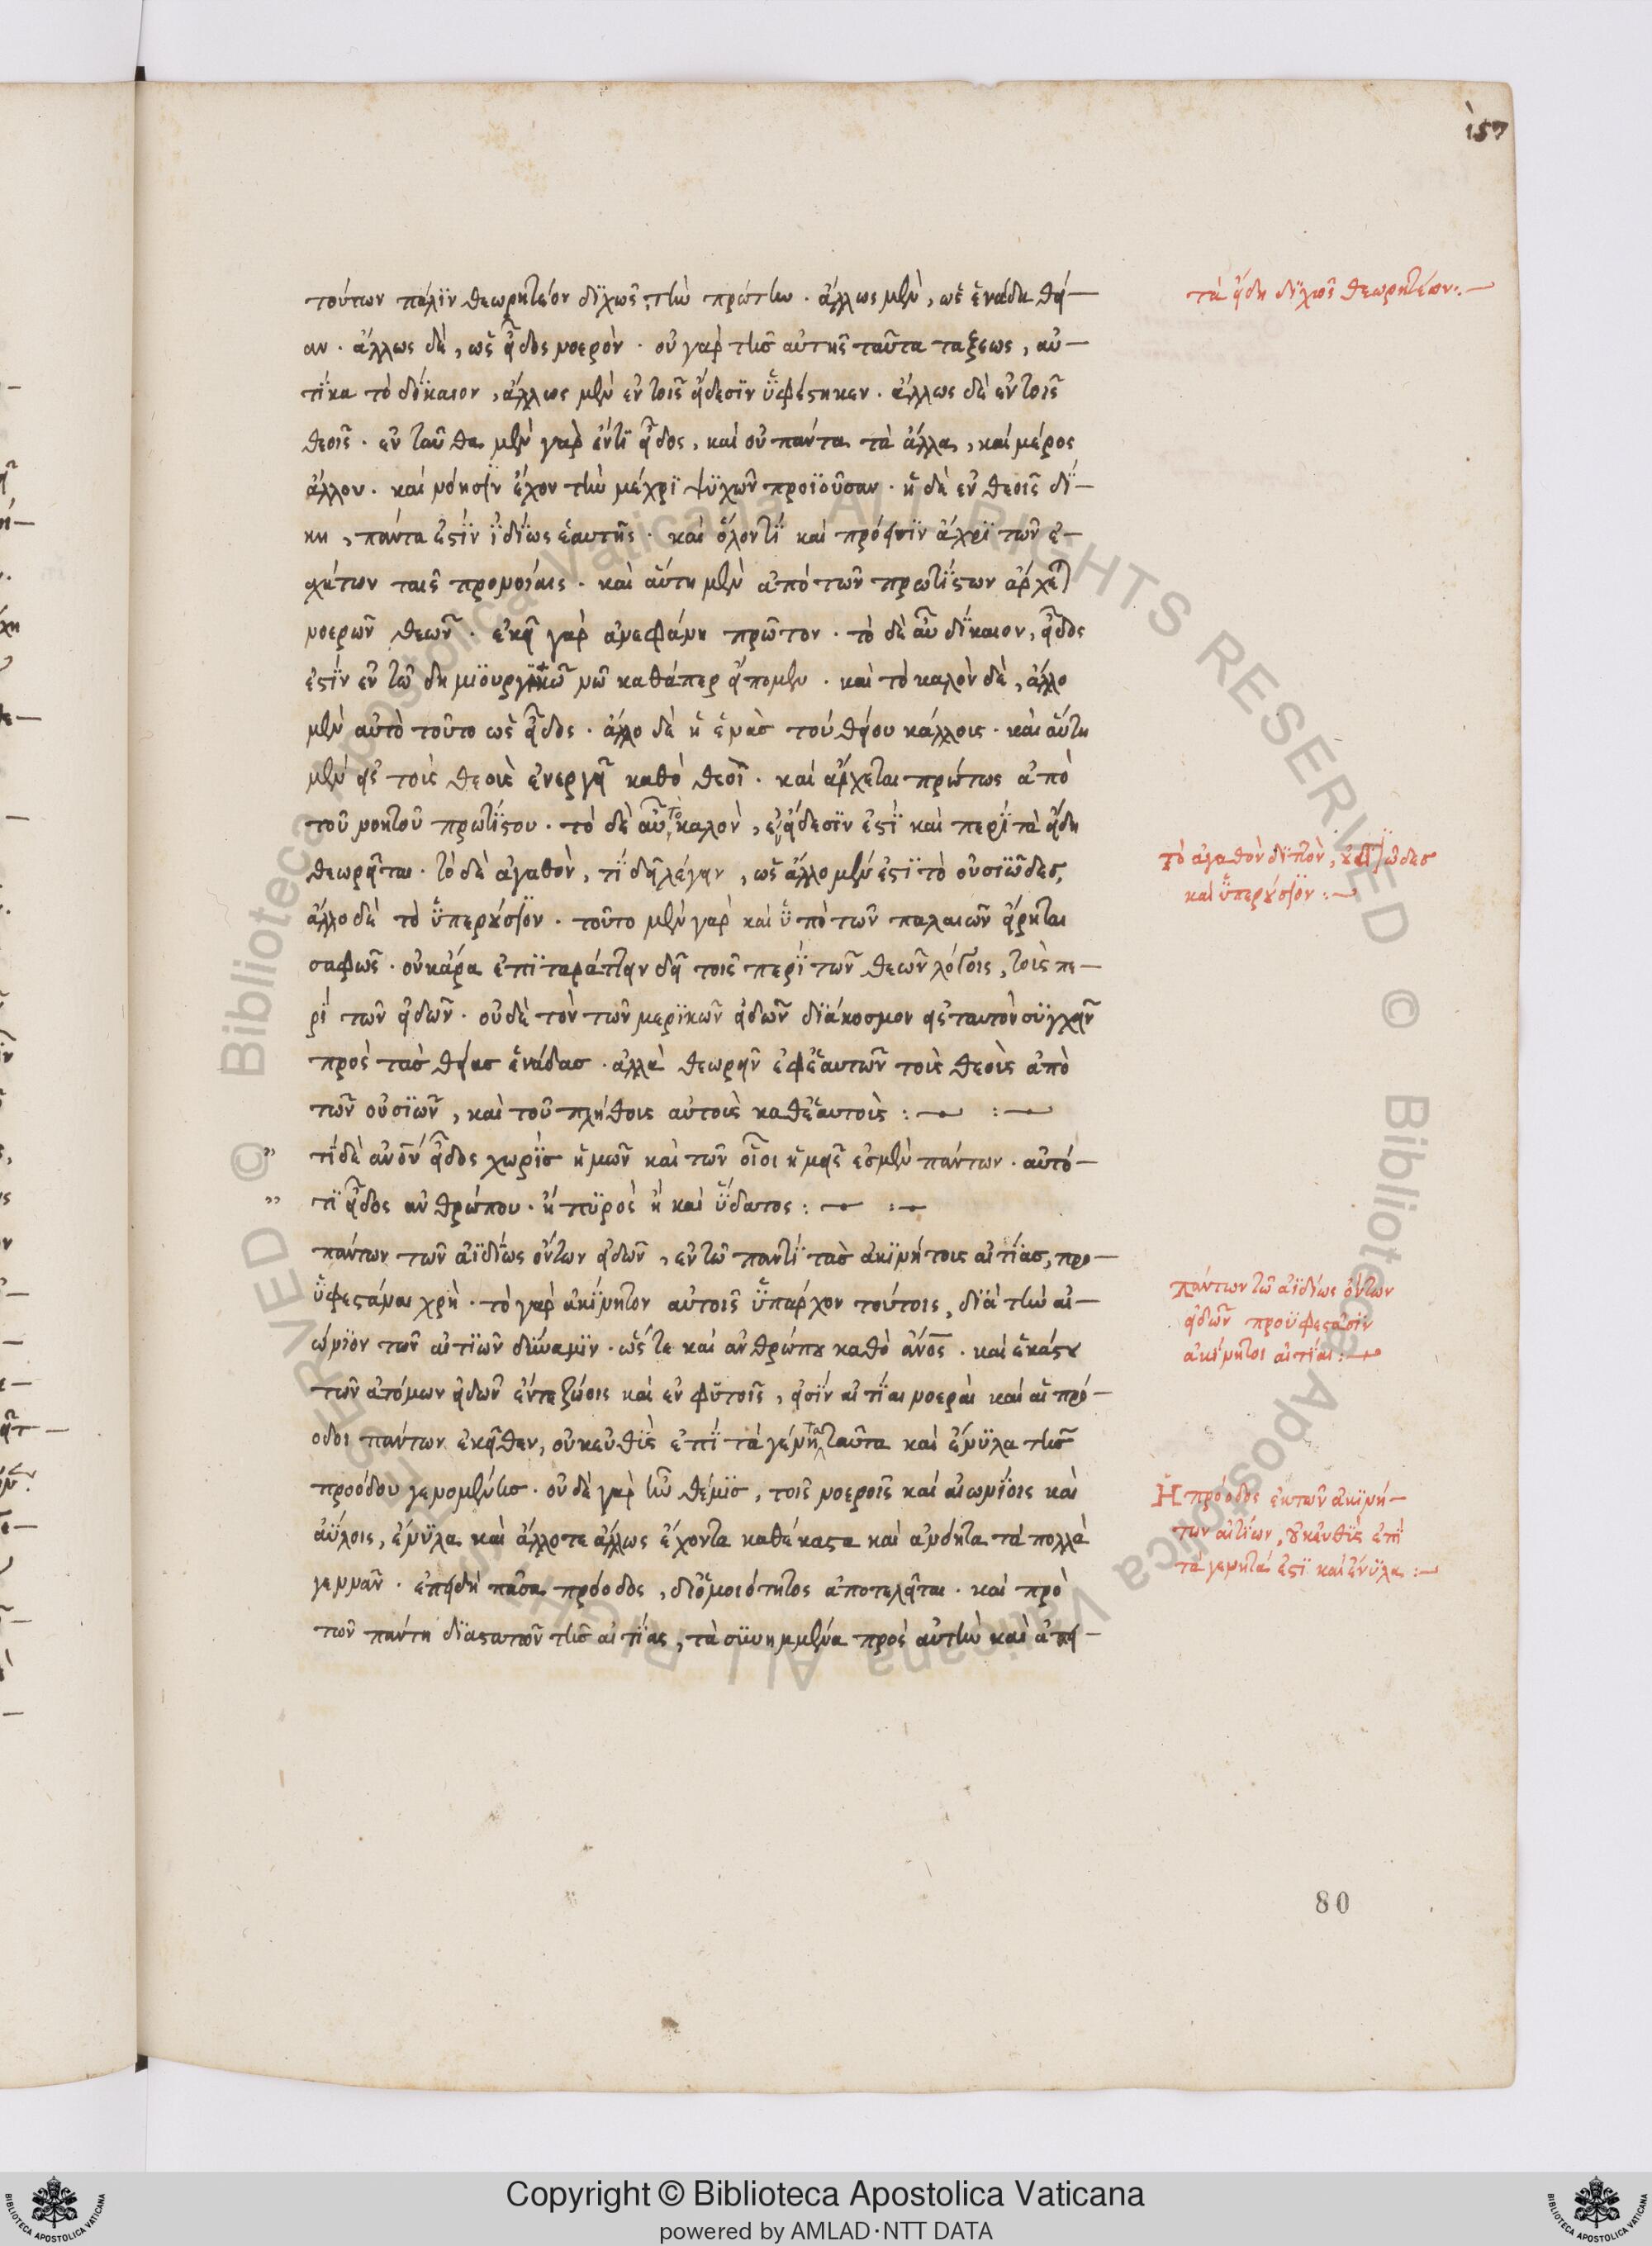 157
τούτων πάλϊν θεωρητέον δϊχῶς τὴν πρώτην · ἄλλως μὲν, ὡς ἑνάδα θεί-
αν · ἄλλως δὲ, ὡς εἶδος νοερὸν · οὐ γὰρ τῆς αὐτῆς ταῦτα ταξεως, αὐ-
τίκα τὸ δίκαιον, ἄλλως μὲν ἐν τοῖς εἴδεσϊν ὑφέστηκεν · ἄλλως δὲ ἐν τοῖς
θεοῖς · ἐν ταῦθα μὲν γὰρ ἐντϊ εἶδος, καὶ οὐ πάντα τὰ ἄλλα, καὶ μέρος
ἄλλου · καὶ νόησϊν ἔχον τὴν μέχρϊ ψϋχῶν προϊοῦσαν · ἡ δὲ ἐν θεοῖς δί-
κη, πάντα ἐστϊν ϊδίως ἑαυτῆς · καὶ ὅλοντϊ καὶ πρόεισϊν ἄχρϊ τῶν ἐ-
σχάτων ταῖς προνοίαις · καὶ αὕτη μὲν ἀπὸ τῶν πρωτίστων ἄρχεται
νοερῶν θεῶν · ἐκεῖ γὰρ ἀνεφάνη πρῶτον · τὸ δὲ αὖ δίκαιον, εἶδος
ἐστϊν ἐν τῶ δημϊουργϊκῶ νῶ καθάπερ εἴπομεν · καὶ τὸ καλὸν δὲ, ἄλλο
μὲν αὐτὸ τοῦτο ὡς εἶδος · ἄλλο δὲ ἡ ἑνὰς τοὺ θείου κάλλους · καὶ αὕτη
μὲν εἰς τοὺς θεοὺς ἐνεργεῖ καθὸ θεοῖ · καὶ ἄρχεται πρώτως ἀπὸ
τοῦ νοητοῦ πρωτίστου · τὸ δὲ αὖ τὸ καλὸν, ἐν εἴδεσϊν ἐστϊ καὶ περὶ τὰ εἴδη
θεωρεῖται · τὸ δὲ ἀγαθὸν, τί δεῖ λέγειν, ὡς ἄλλο μὲν ἐστϊ τὸ οὐσϊῶδες,
ἄλλο δὲ τὸ ὑπερούσϊον · τοῦτο μὲν γὰρ καὶ ὑπὸ τῶν παλαιῶν εἴρηται
σαφῶς · οὐκ ἄρα ἐπϊταράττειν δεῖ τοῖς περὶ τῶν θεῶν λόγοις, τοὺς πε-
ρὶ τῶν εἰδῶν · οὐδὲ τὸν τῶν μερϊκῶν εἰδῶν διάκοσμον εἰς ταυτὸν συγχεῖν
πρὸς τὰς θείας ἑνάδας · ἀλλὰ θεωρεῖν ἐφ' ἑαυτῶν τοὺς θεοὺς ἀπὸ
τῶν οὐσϊῶν, καὶ τοῦ πλήθους αὐτοὺς καθ' ἑαυτοὺς :— :—
" τί δὲ ἀνοῦν εἶδος χωρϊς ἡμῶν καὶ τῶν οἷοι ἡμεῖς ἐσμὲν πάντων · αὐτό-
" τϊ εἶδος ἀνθρώπου · ἢ πϋρὸς ἢ καὶ ὕδατος :— :—
πάντων τῶν ἀϊδίως ὄντων εἰδῶν, ἐν τῶ παντὶ τὰς ἀκϊνήτους αἰτίας, προ-
ὑφεστάναι χρὴ · τὸ γὰρ ἀκίνητον αὐτοῖς ὑπάρχον τούτοις, διὰ τὴν αἰ-
ώνϊον τῶν αἰτϊῶν δύναμϊν · ὥστε καὶ ἀνθρώπου καθὸ ἄνος · καὶ ἑκάστου
τῶν ἀτόμων εἰδῶν ἔντε ζώοις καὶ ἐν φυτοῖς, εἰσϊν αἰτίαι νοεραὶ καὶ αἱ πρό-
οδοι πάντων ἐκεῖθεν, οὐκ εὐθὺς ἐπὶ τὰ γένητα ταῦτα καὶ ἔνϋλα τῆς
προόδου γενομένης · οὐδὲ γὰρ ἦν θέμϊς, τοῖς νοεροῖς καὶ αἰωνίοις καὶ
ἀύλοις, ἔνϋλα καὶ ἄλλοτε ἄλλως ἔχοντα καθέκαστα καὶ ἀνόητα τὰ πολλὰ
γεννᾶν · ἐπειδὴ πᾶσα πρόοδος, δι' ὁμοιότητος ἀποτελεῖται · καὶ πρὸ
τῶν πάντη διαστατῶν τῆς αἰτίας, τὰ συνημμένα πρὸς αὐτὴν καὶ ἀπει-
τὰ εἴδη δϊχῶς θεωρητέον :—
τὸ ἀγαθὸν διττὸν, οὐσϊῶδες
καὶ ὑπερούσϊον :—
πάντων τῶ ἀϊδίως ὄντων
εἰδῶν προϋφεστάσϊν
ἀκίνητοι αἰτίαι :—
Ἡ πρόοδος ἐκ τῶν ἀκϊνή-
των αἰτίων, οὐκ εὐθὺς ἐπὶ
τὰ γενητὰ ἐστϊ καὶ ἔνϋλα :—
80
© Biblioteca Apostolica Vaticana ALL RIGHTS RESERVED © Biblioteca Apostolica Vaticana ALL RIGHTS RESERVED
Copyright © Biblioteca Apostolica Vaticana
powered by AMLAD·NTT DATA
BIBLIOTECA APOSTOLICA VATICANA
BIBLIOTECA APOSTOLICA VATICANA